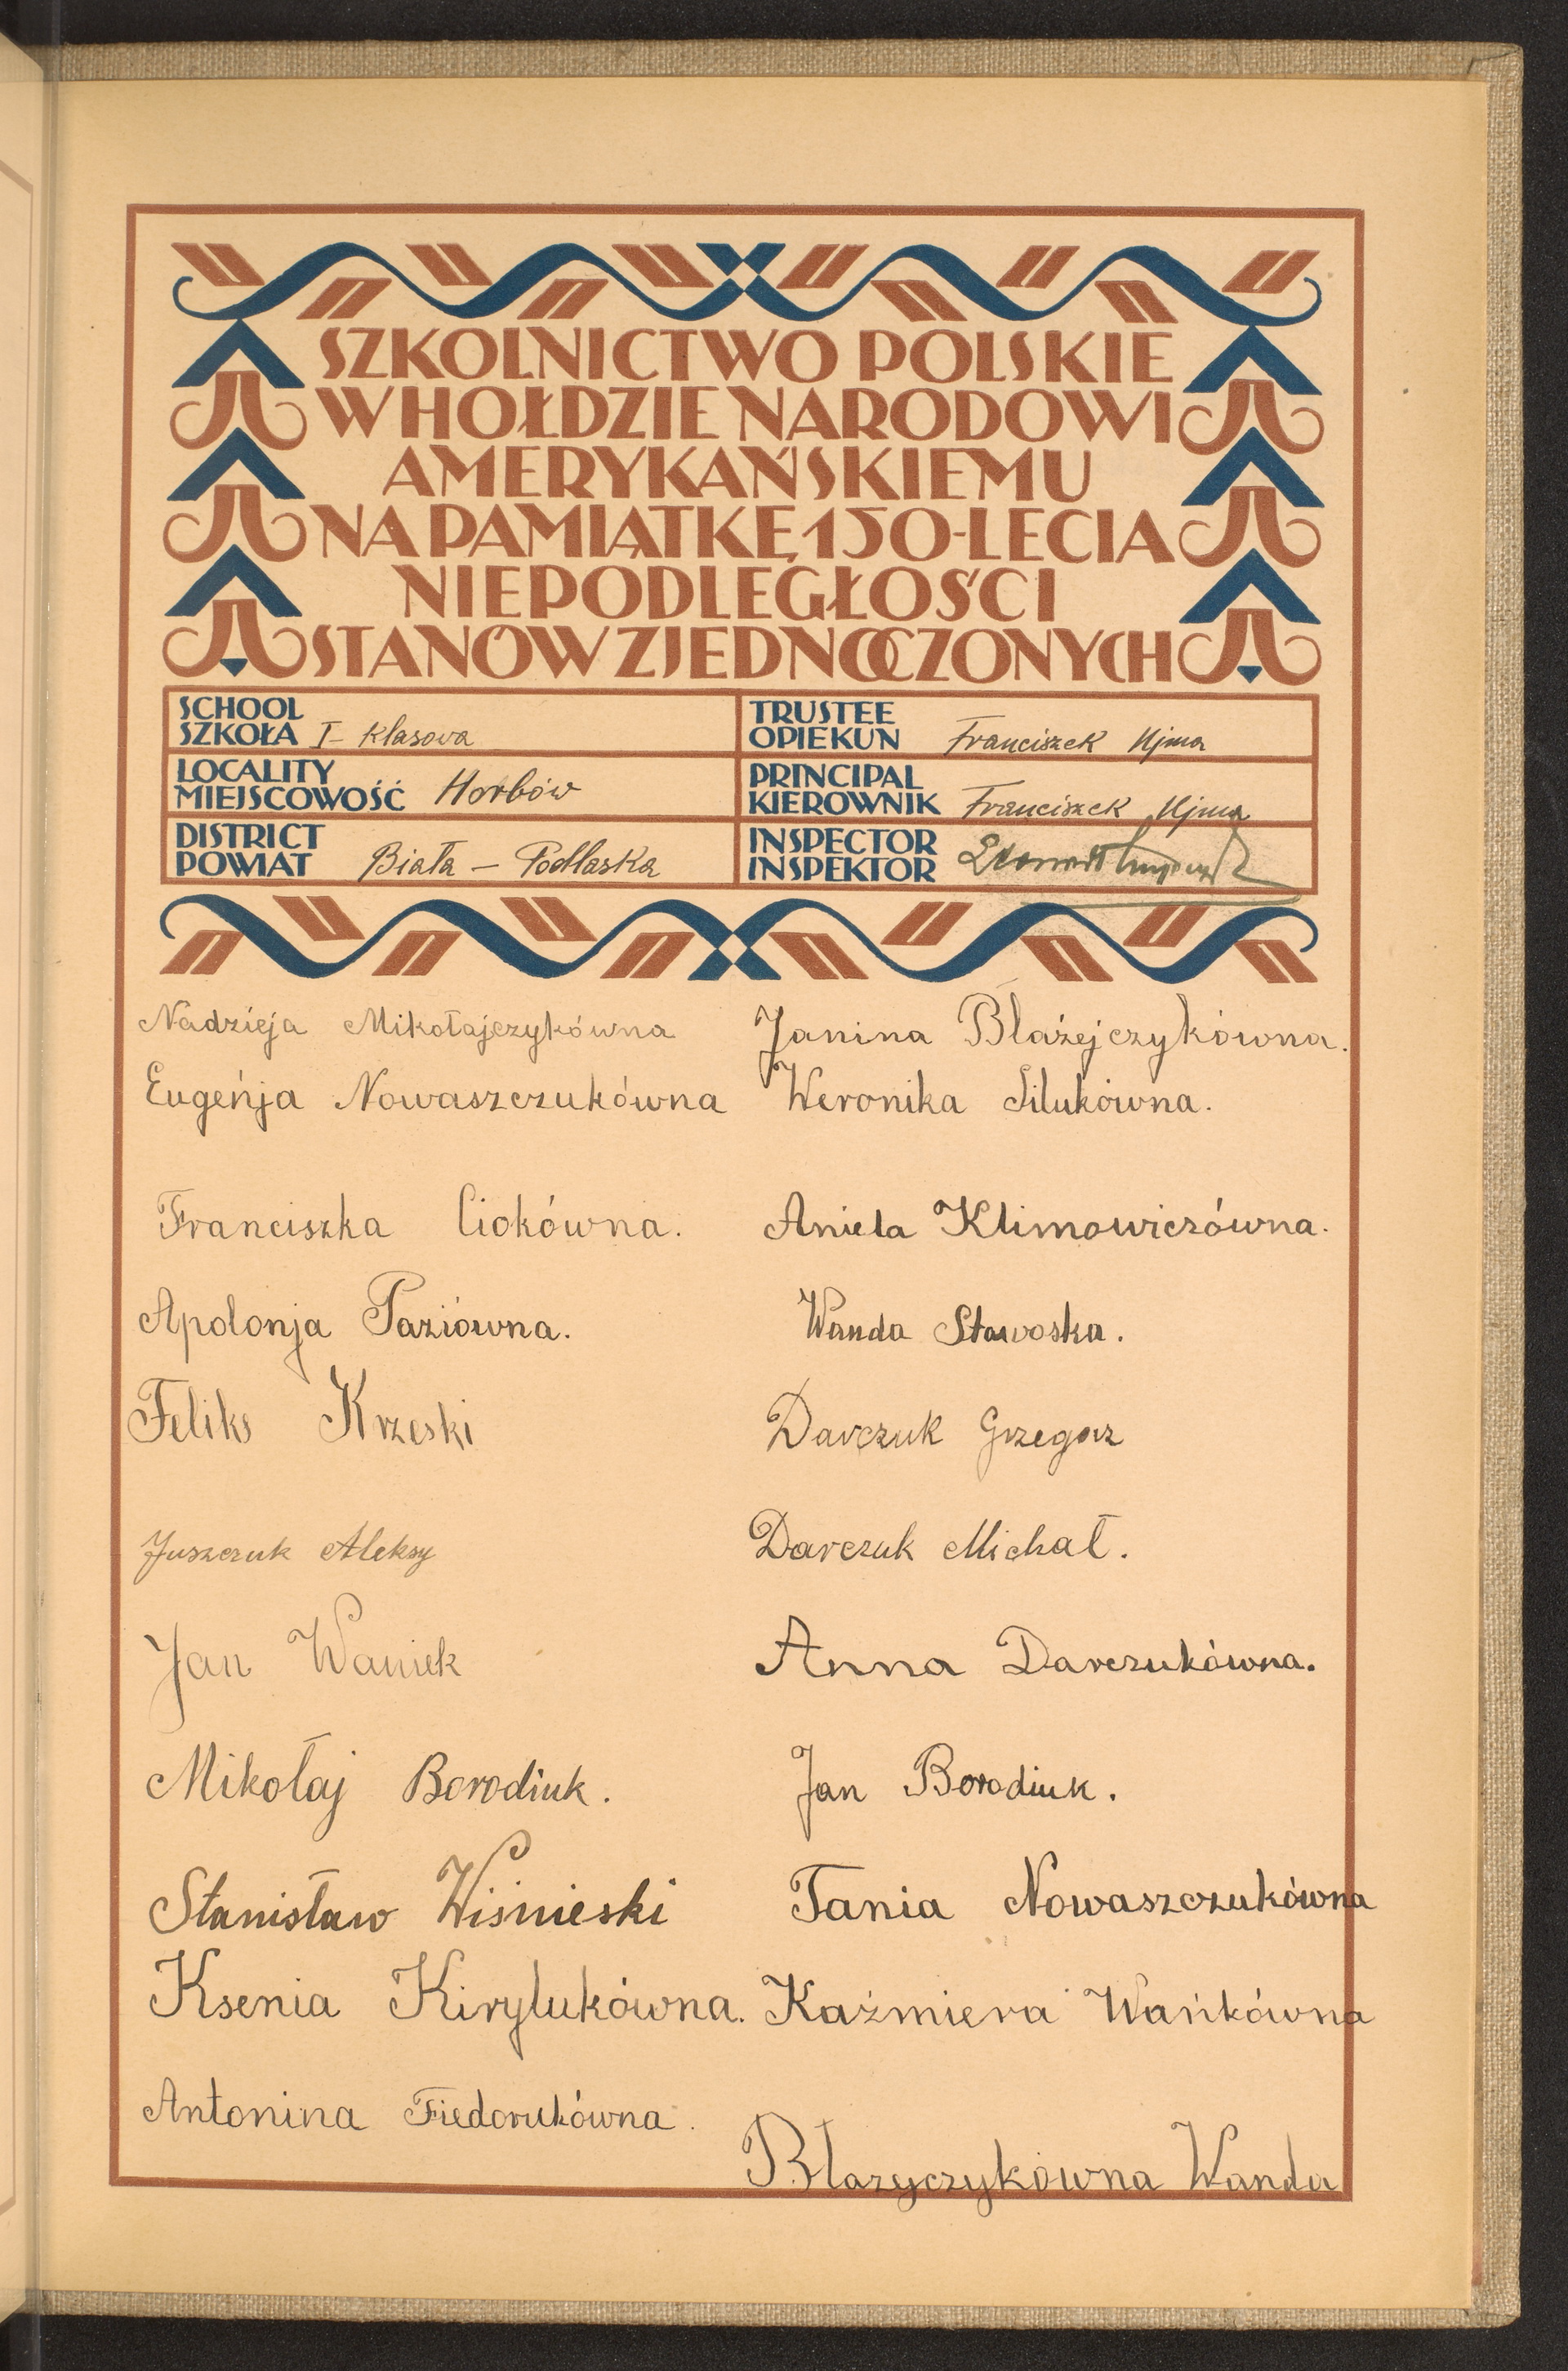 SZKOLNICTWO POLSKIE
W HOŁDZIE NARODOWI
AMERYKAŃSKIEMU
NA PAMIĄTKĘ 150-LECIA
NIEPODLEGŁOŚCI
STANÓW ZJEDNOCZONYCH
SCHOOL
SZKOŁA I- klasowa
LOCALITY
MIEJSCOWOŚĆ Horbów
DISTRICT
POWIAT Biała - Podlaska
TRUSTEE
OPIEKUN Franciszek Ujma
PRINCIPAL
KIEROWNIK Franciszek Ujma
INSPECTOR
INSPEKTOR
Nadzieja Mikołajczykówna
Eugeńja Nowaszczukówna
Franciszka Ciokówna.
Apolonja Paziówna.
Feliks Krzeski
Juszczuk Aleksy
Jan Waniek
Mikołaj Borodiuk.
Stanisław Wiśnieski
Ksenia Kirylukówna.
Antonina Fiedorukówna.
Janina Błażejczykówna.
Weronika Silukówna.
Aniela Klimowiczówna.
Wanda Stawoska.
Darczuk Grzegorz
Darczuk Michał.
Anna Darczukówna.
Jan Borodiuk.
Tania Nowaszczukówna
Kaźmiera Wańkówna
Błazyczykówna Wanda